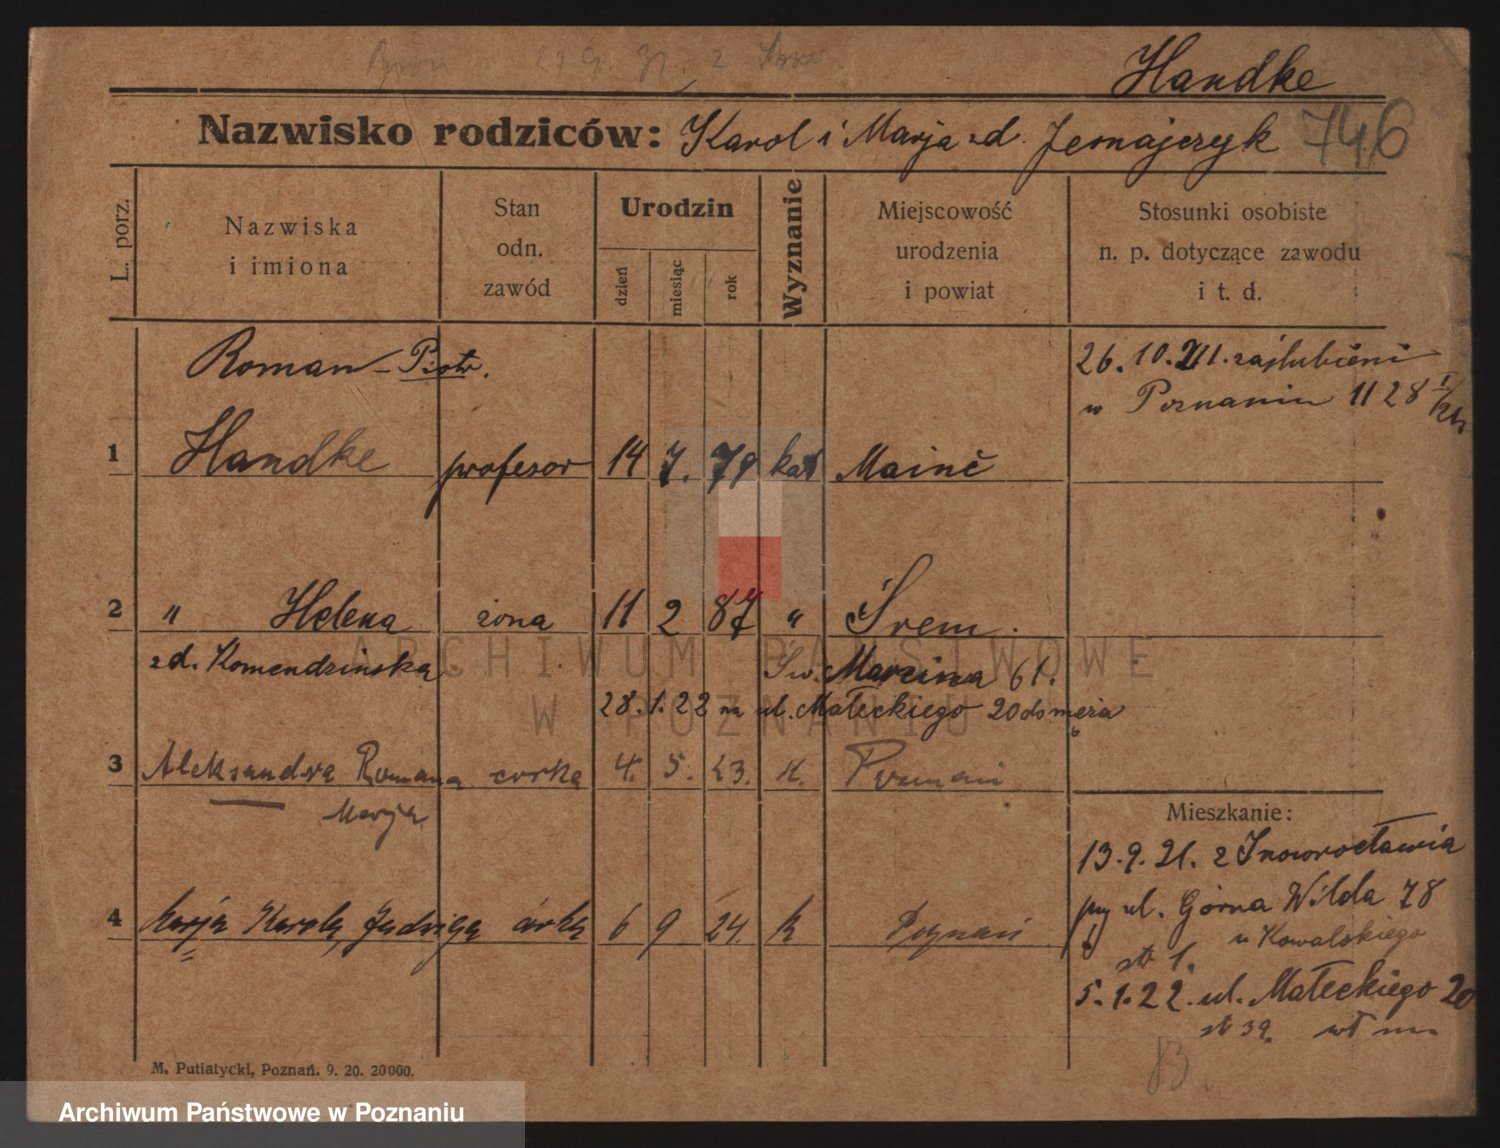 Handke
Nazwisko rodziców: Karol i Marja zd. Jernajczyk 746
L. porz.
Nazwiska
i imiona
Stan
odn.
zawód
Urodzin
dzień
miesiąc
rok
Wyznanie
Miejscowość
urodzenia
i powiat
Stosunki osobiste
n. p. dotyczące zawodu
i t. d.
Roman - Piotr.
26. 10. 21. zaślubieni
w Poznaniu 1128
1 Handke profesor 14 7. 79 kat
2 " Helena żona 11 2 87 " Śrem.
zd. Komendzińska
Św. Marcina 61.
28. 1. 22 na ul. Małeckiego 20 do męża
3 Aleksandra Romana córka 4. 5. 23. k. Poznań
Marja
Mieszkanie:
13. 9. 21. z Inowrocławia
przy ul. Górna Wilda 78
u Kowalskiego
str 1.
4 Marja Karola Jadwiga córka 6 9 24. k Poznań
5. 1. 22. ul. Małeckiego 20
str 39.
M. Putiatycki, Poznań. 9. 20. 20000.
ARCHIWUM PAŃSTWOWE
W POZNANIU
Archiwum Państwowe w Poznaniu